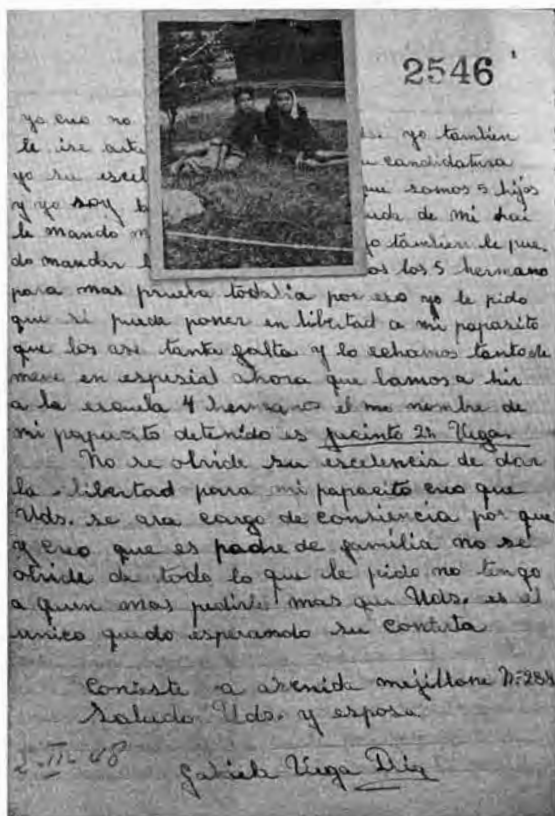 2546
yo creo no se yo tambien
le ise candidatura
yo su escel que somos 5 hijos
y yo soy de mi
le mando m tambien le pue
do mandar los 5 hermano
para mas prueba todabia por eso yo le pido
que si puede poner en libertad a mi papasito
que los ase tanta falta y lo echamos tanto de
mene en espesial ahora que bamos a hir
a la escuela 4 hermanos el nombre de
mi papacito detenido es Jacinto 2n Vega
No se olvide su escelencia de dar
la libertad para mi papacito creo que
Uds. se ara cargo de consiencia por que
y creo que es padre de familia no se
olvide de todo lo que le pido no tengo
a quien mas pedirle mas que Uds. es el
unico quedo esperando su contesta
Conteste a avenida mejillone Nº 288
Saludo Uds. y esposa
2-III-48
Gabriela Vega Diaz